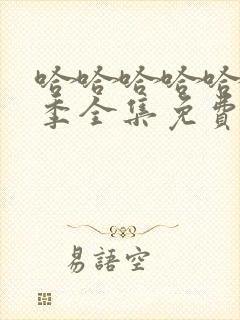 哈哈哈哈哈
季全集免費
易語空